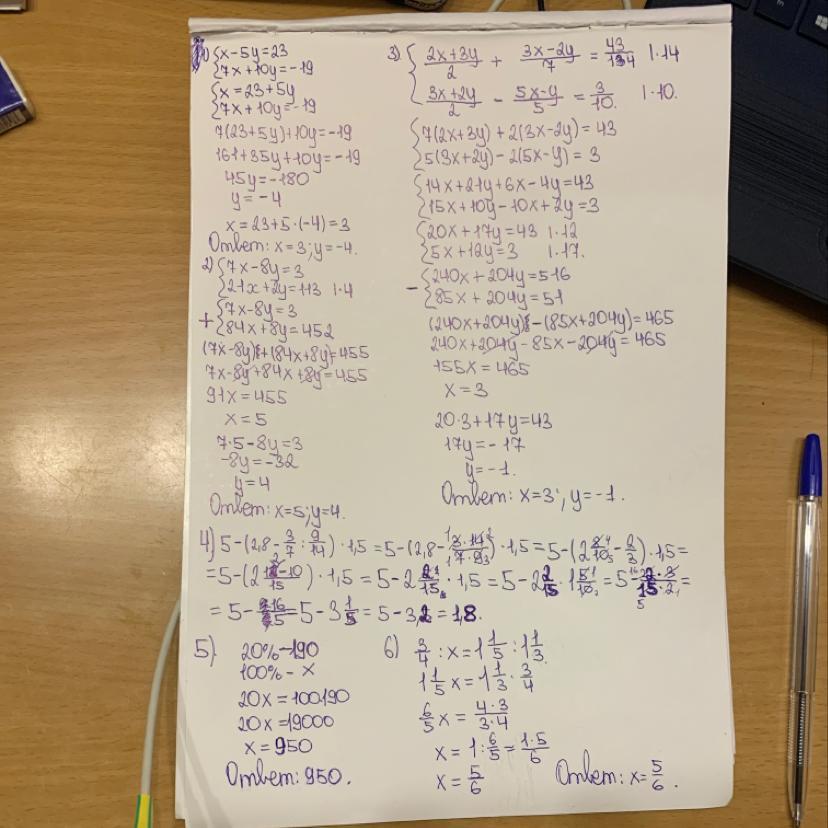 1) {x-5y=23
{7x+10y=-19
{x=23+5y
{7x+10y=-19
7(23+5y)+10y=-19
161+35y+10y=-19
45y=-180
y=-4
x=23+5·(-4)=3
Ответ: x=3; y=-4.
2) {7x-8y=3
{21x+2y=113 |·4
+ {7x-8y=3
{84x+8y=452
(7x-8y)+(84x+8y)=455
7x-8y+84x+8y=455
91x=455
x=5
7·5-8y=3
-8y=-32
y=4
Ответ: x=5; y=4.
3) { (2x+3y)/2 + (3x-2y)/7 = 43/14 |·14
{ (3x+2y)/2 - (5x-y)/5 = 3/10. |·10.
{7(2x+3y)+2(3x-2y)=43
{5(3x+2y)-2(5x-y)=3
{14x+21y+6x-4y=43
{15x+10y-10x+2y=3
{20x+17y=43 |·12
{5x+12y=3 |·17.
- {240x+204y=516
{85x+204y=51
(240x+204y)-(85x+204y)=465
240x+204y-85x-204y=465
155x=465
x=3
20·3+17y=43
17y=-17
y=-1.
Ответ: x=3; y=-1.
4) 5-(2,8-3/7:9/14)·1,5=5-(2,8-3·14/7·9)·1,5=5-(2 8/10-2/3)·1,5=
=5-(2 12-10/15)·1,5=5-2 2/15·1,5=5-2 2/15·1 5/10=5-32·3/15·2=
=5-16/5=5-3 1/5=5-3,2=1,8.
5) 20%-190
100%-x
20x=100·190
20x=19000
x=950
Ответ: 950.
6) 3/4:x=1 1/5:1 1/3
1 1/5 x=1 1/3·3/4
6/5 x=4·3/3·4
x=1:6/5=1·5/6
x=5/6
Ответ: x=5/6.